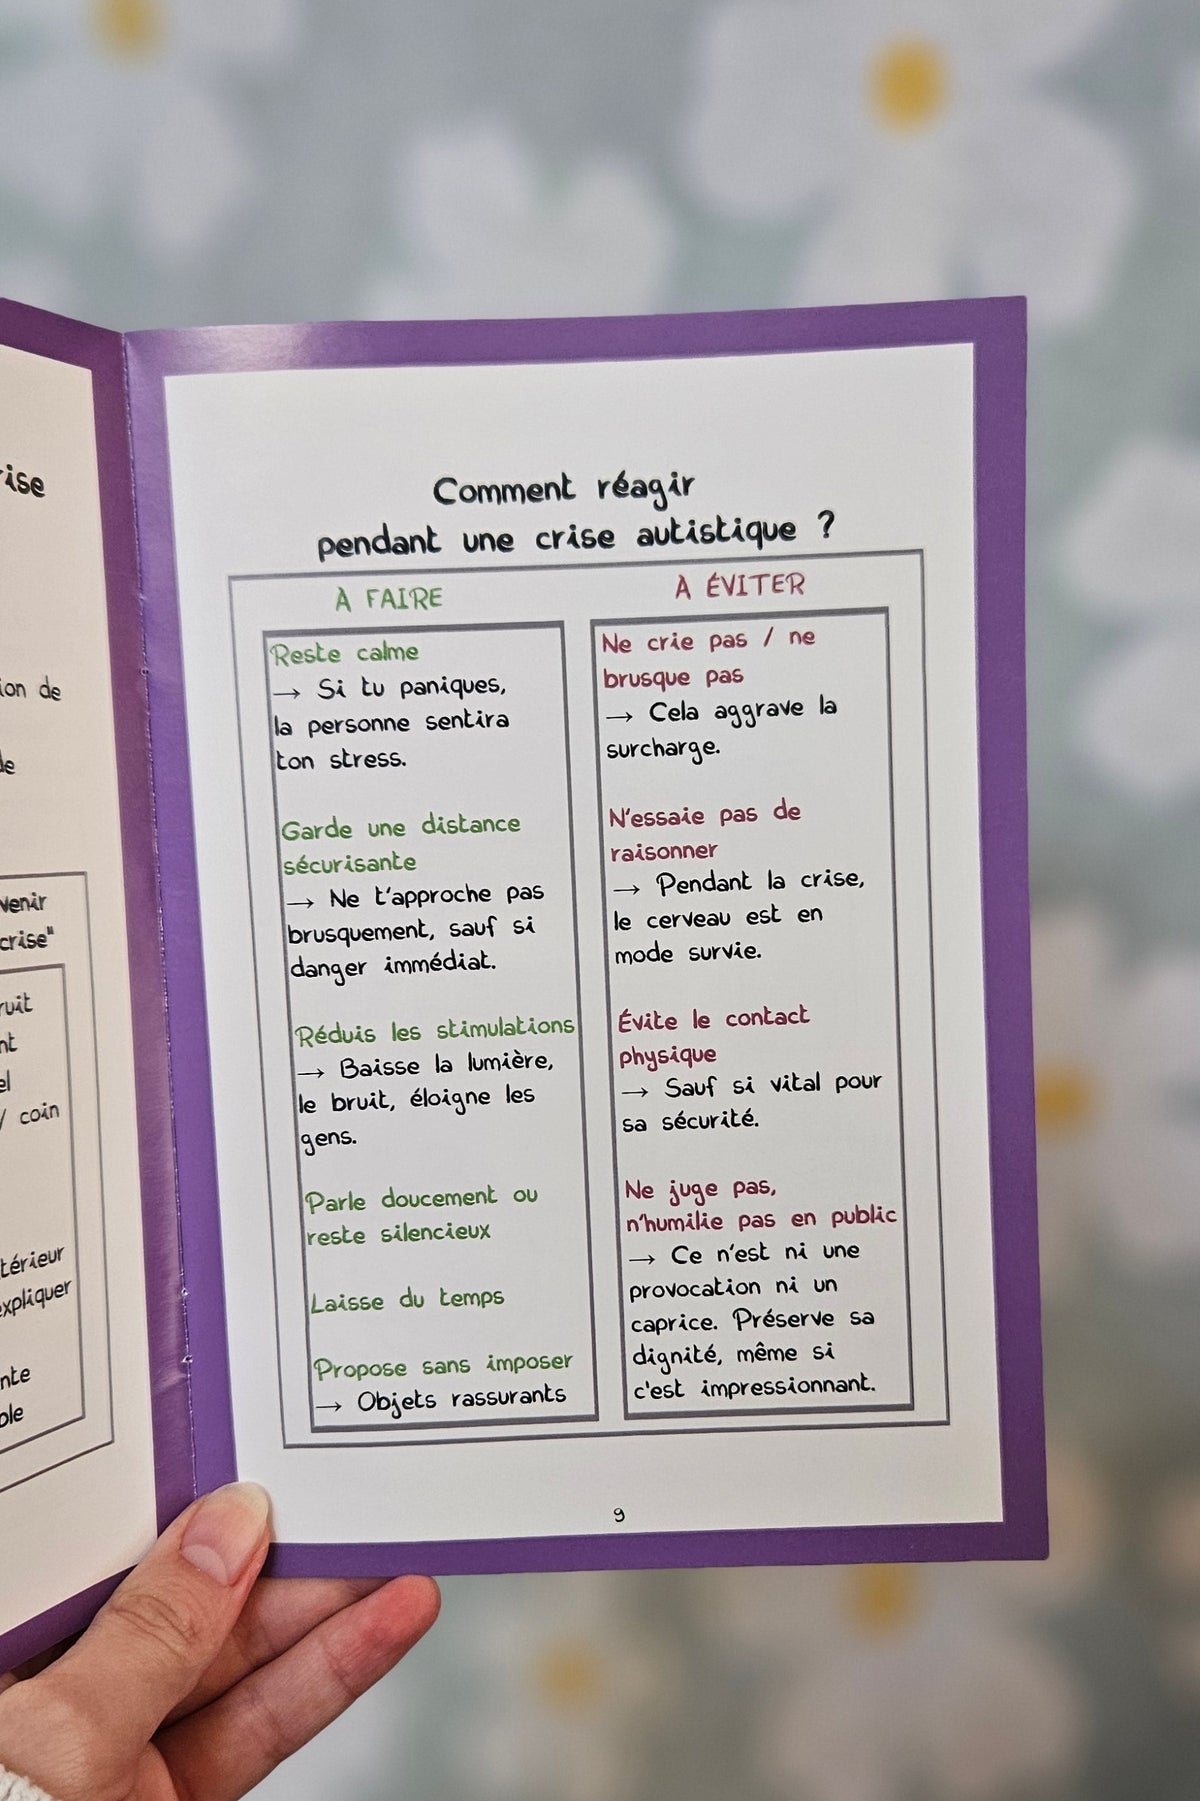 ise
ion de
de
venir
crise"
ruit
nt
el
/ coin
térieur
expliquer
nte
ble
Comment réagir
pendant une crise autistique ?
À FAIRE
Reste calme
→ Si tu paniques,
la personne sentira
ton stress.
Garde une distance
sécurisante
→ Ne t'approche pas
brusquement, sauf si
danger immédiat.
Réduis les stimulations
→ Baisse la lumière,
le bruit, éloigne les
gens.
Parle doucement ou
reste silencieux
Laisse du temps
Propose sans imposer
→ Objets rassurants
À ÉVITER
Ne crie pas / ne
brusque pas
→ Cela aggrave la
surcharge.
N'essaie pas de
raisonner
→ Pendant la crise,
le cerveau est en
mode survie.
Évite le contact
physique
→ Sauf si vital pour
sa sécurité.
Ne juge pas,
n'humilie pas en public
→ Ce n'est ni une
provocation ni un
caprice. Préserve sa
dignité, même si
c'est impressionnant.
9